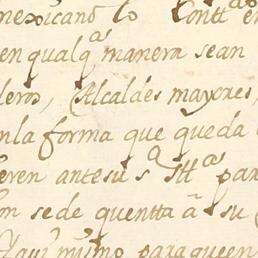 mexicano lo Contta en
en qualqᵃ manera sean
deros, Alcaldes mayores,
nla forma que queda
eren antesu sᵃ Ittᵃˢ par
on sede quentta â su
Aqui mismo paraqueen